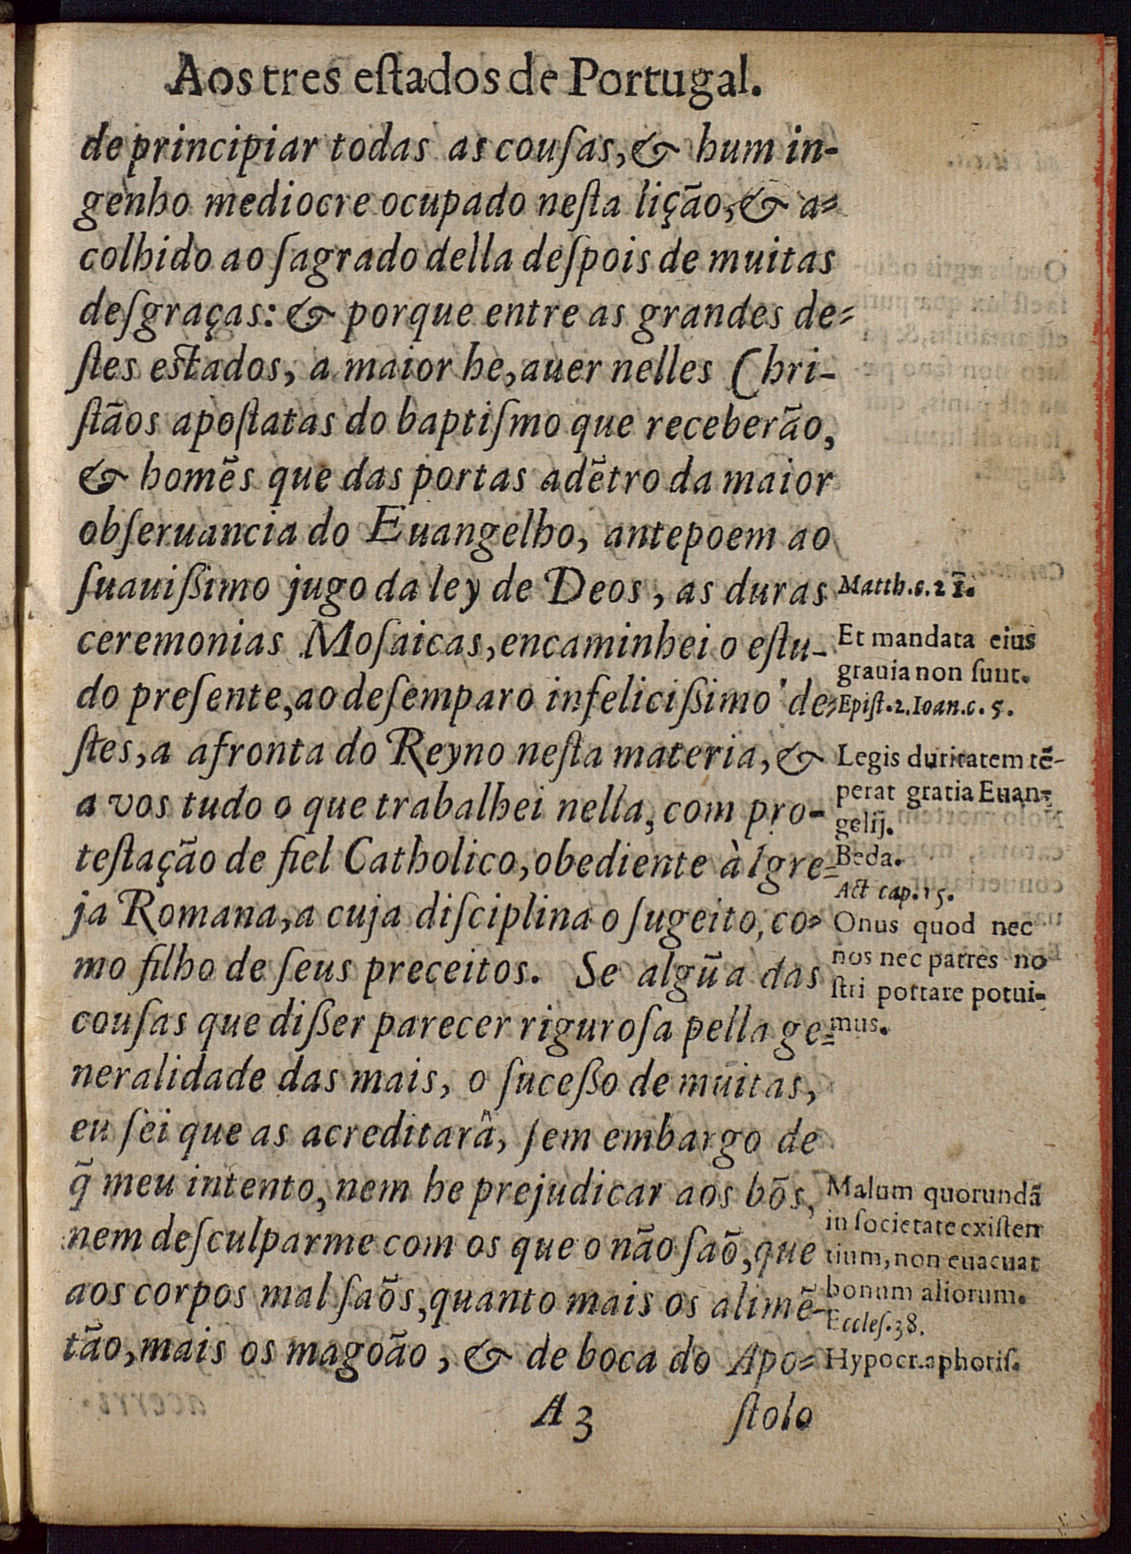 Aos tres eſtados de Portugal.
de principiar todas as couſas, & hum in-
genho mediocre ocupado neſta liçāo, & a-
colhido ao ſagrado della deſpois de muitas
deſgraças: & porque entre as grandes de-
ſtes eſtados, a maior he, auer nelles Chri-
ſtãos apoſtatas do baptiſmo que receberão,
& homẽs que das portas adẽtro da maior
obſeruancia do Euangelho, antepoem ao
ſuauißimo jugo da ley de Deos, as duras
ceremonias Moſaicas, encaminhei o eſtu-
do preſente, ao deſemparo infelicißimo de-
ſtes, a afronta do Reyno neſta materia, &
a vos tudo o que trabalhei nella, com pro-
teſtação de fiel Catholico, obediente à Igre-
ja Romana, a cuja diſciplina o ſugeito, co-
mo filho de ſeus preceitos. Se algũa das
couſas que dißer parecer riguroſa pella ge-
neralidade das mais, o ſuceßo de muitas,
eu ſei que as acreditarâ, ſem embargo de
q̃ meu intento, nem he prejudicar aos bõs,
nem deſculparme com os que o não ſaõ, que
aos corpos mal ſaõs, quanto mais os alimẽ-
tão, mais os magoão, & de boca do Apo-
A 3 ſtolo
Matth.c.21.
Et mandata eius
grauia non ſunt.
Epiſt.2.Ioan.c.5.
Legis duritatem tẽ-
perat gratia Euan-
gelij.
Beda.
Act cap.15.
Onus quod nec
nos nec patres no
ſtri portare potui-
mus.
Malum quorundã
in ſocietate exiſten
tium, non euacuat
bonum aliorum.
Eccleſ.38.
Hypocr.aphoriſ.